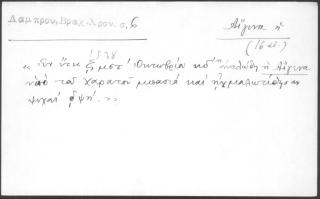 Λαμπρου, Βραχ. Χρον. σ, 6
Αἴγινα ἡ
(16 αἰ.)
1538
« ἐν ἔτει ζμστ' Ὀκτωβρίω κδ' ἡ Αἴγινα
ὑπὸ τοῦ Χαρατοῦ μπασιᾶ καὶ ἠχμαλωτίσθησαν
ψυχαὶ >>